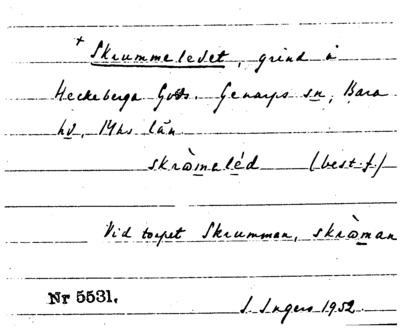 + Skrummeledet, grind å
Heckeberga Gods. Genarps sn, Bara
hd, Mhs län.
skrὼmeléd (best. f.)
Vid torpet Skrumman, skrὼman
Nr 5531. I. Ingers 1952.